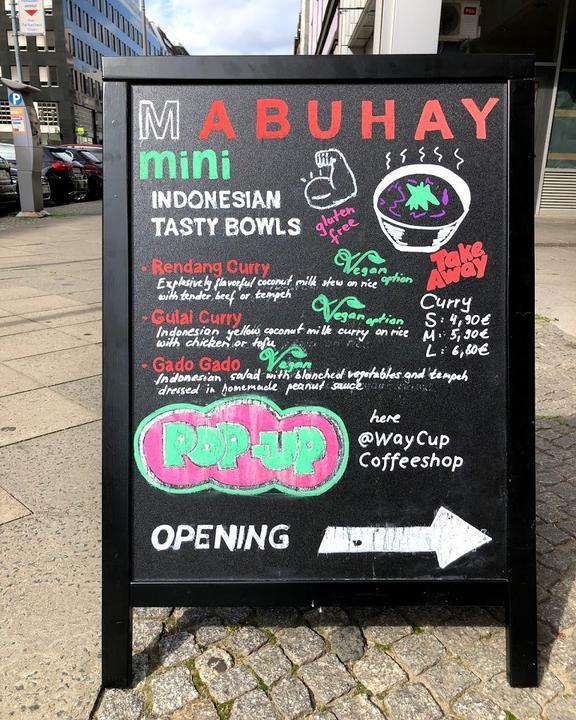 MABUHAY
mini
INDONESIAN
TASTY BOWLS
gluten
free
Take
Away
• Rendang Curry
Vegan option
Explosively flavorful coconut milk stew on rice
with tender beef or tempeh
• Gulai Curry
Vegan option
Indonesian yellow coconut milk curry on rice
with chicken or tofu
• Gado Gado
Vegan
Indonesian salad with blanched vegetables and tempeh
dressed in homemade peanut sauce
Curry
S: 4,90€
M: 5,90€
L: 6,80€
POP-UP
here
@WayCup
Coffeeshop
OPENING
P